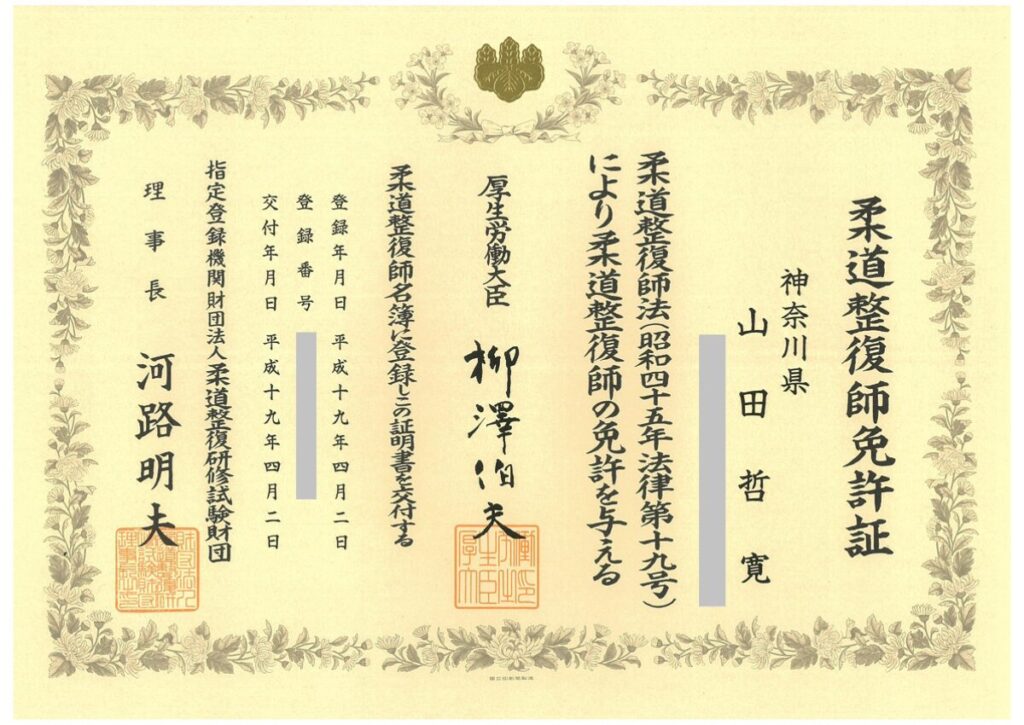 柔道整復師免許証
神奈川県
山田哲寛
柔道整復師法(昭和四十五年法律第十九号)
により柔道整復師の免許を与える
厚生労働大臣 柳澤伯夫
柔道整復師名簿に登録しこの証明書を交付する
登録年月日 平成十九年四月二日
登録番号
交付年月日 平成十九年四月二日
指定登録機関財団法人柔道整復研修試験財団
理事長 河路明夫